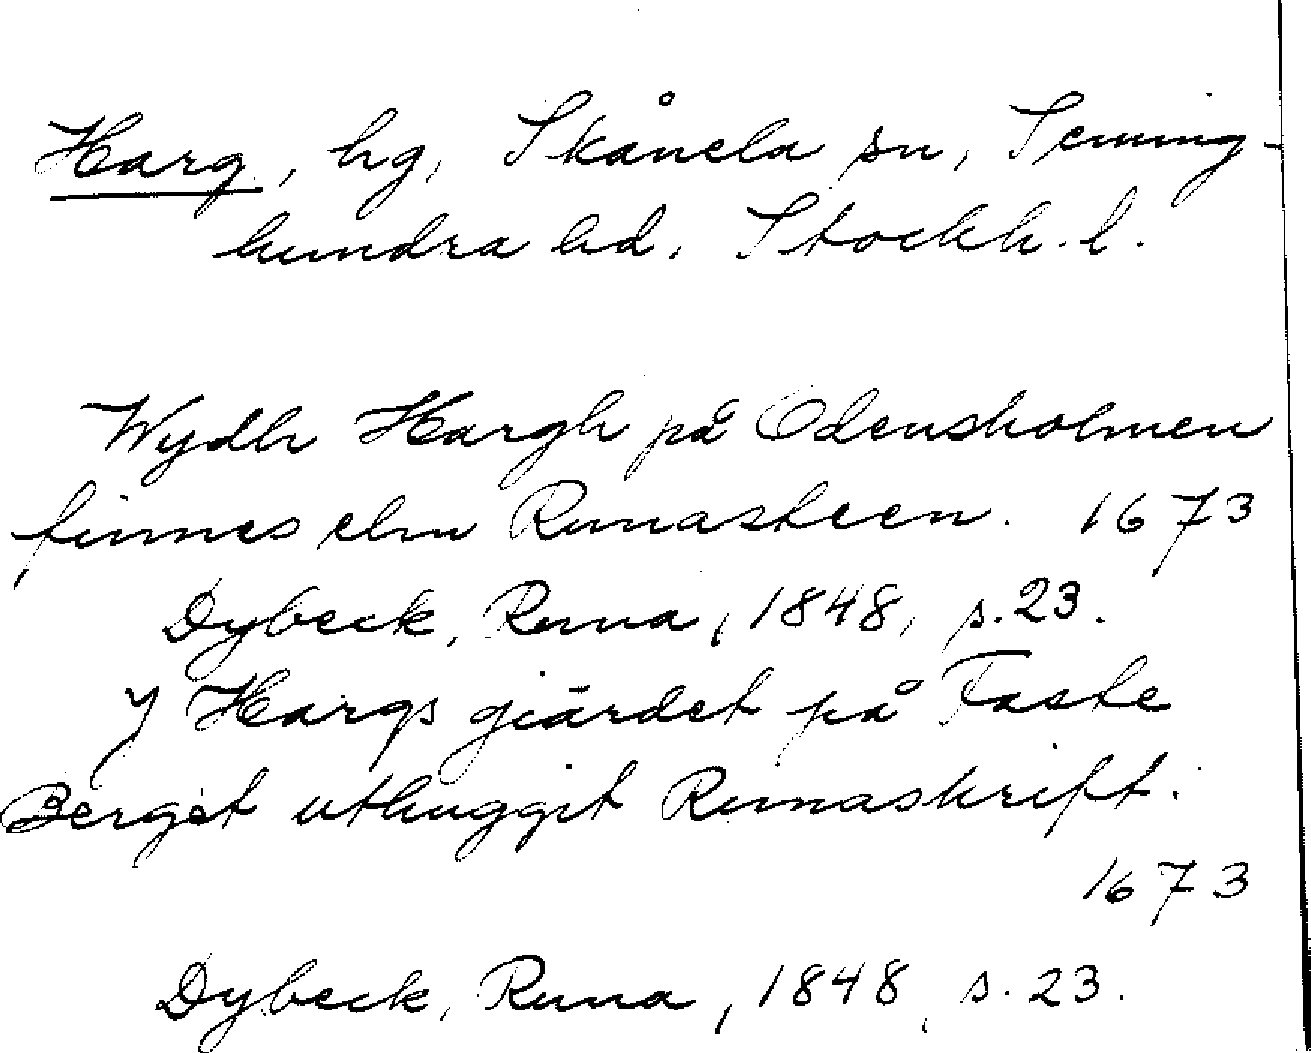 Harg, hg, Skånela sn, Seming-
hundra hd. Stockh. l.
Wydh Hargh på Odensholmen
finnes ehn Runasteen. 1673
Dybeck, Runa, 1848, s. 23.
Y Hargs giärdet på Faste
Berget uthuggit Runaskrift.
1673
Dybeck, Runa, 1848, s. 23.